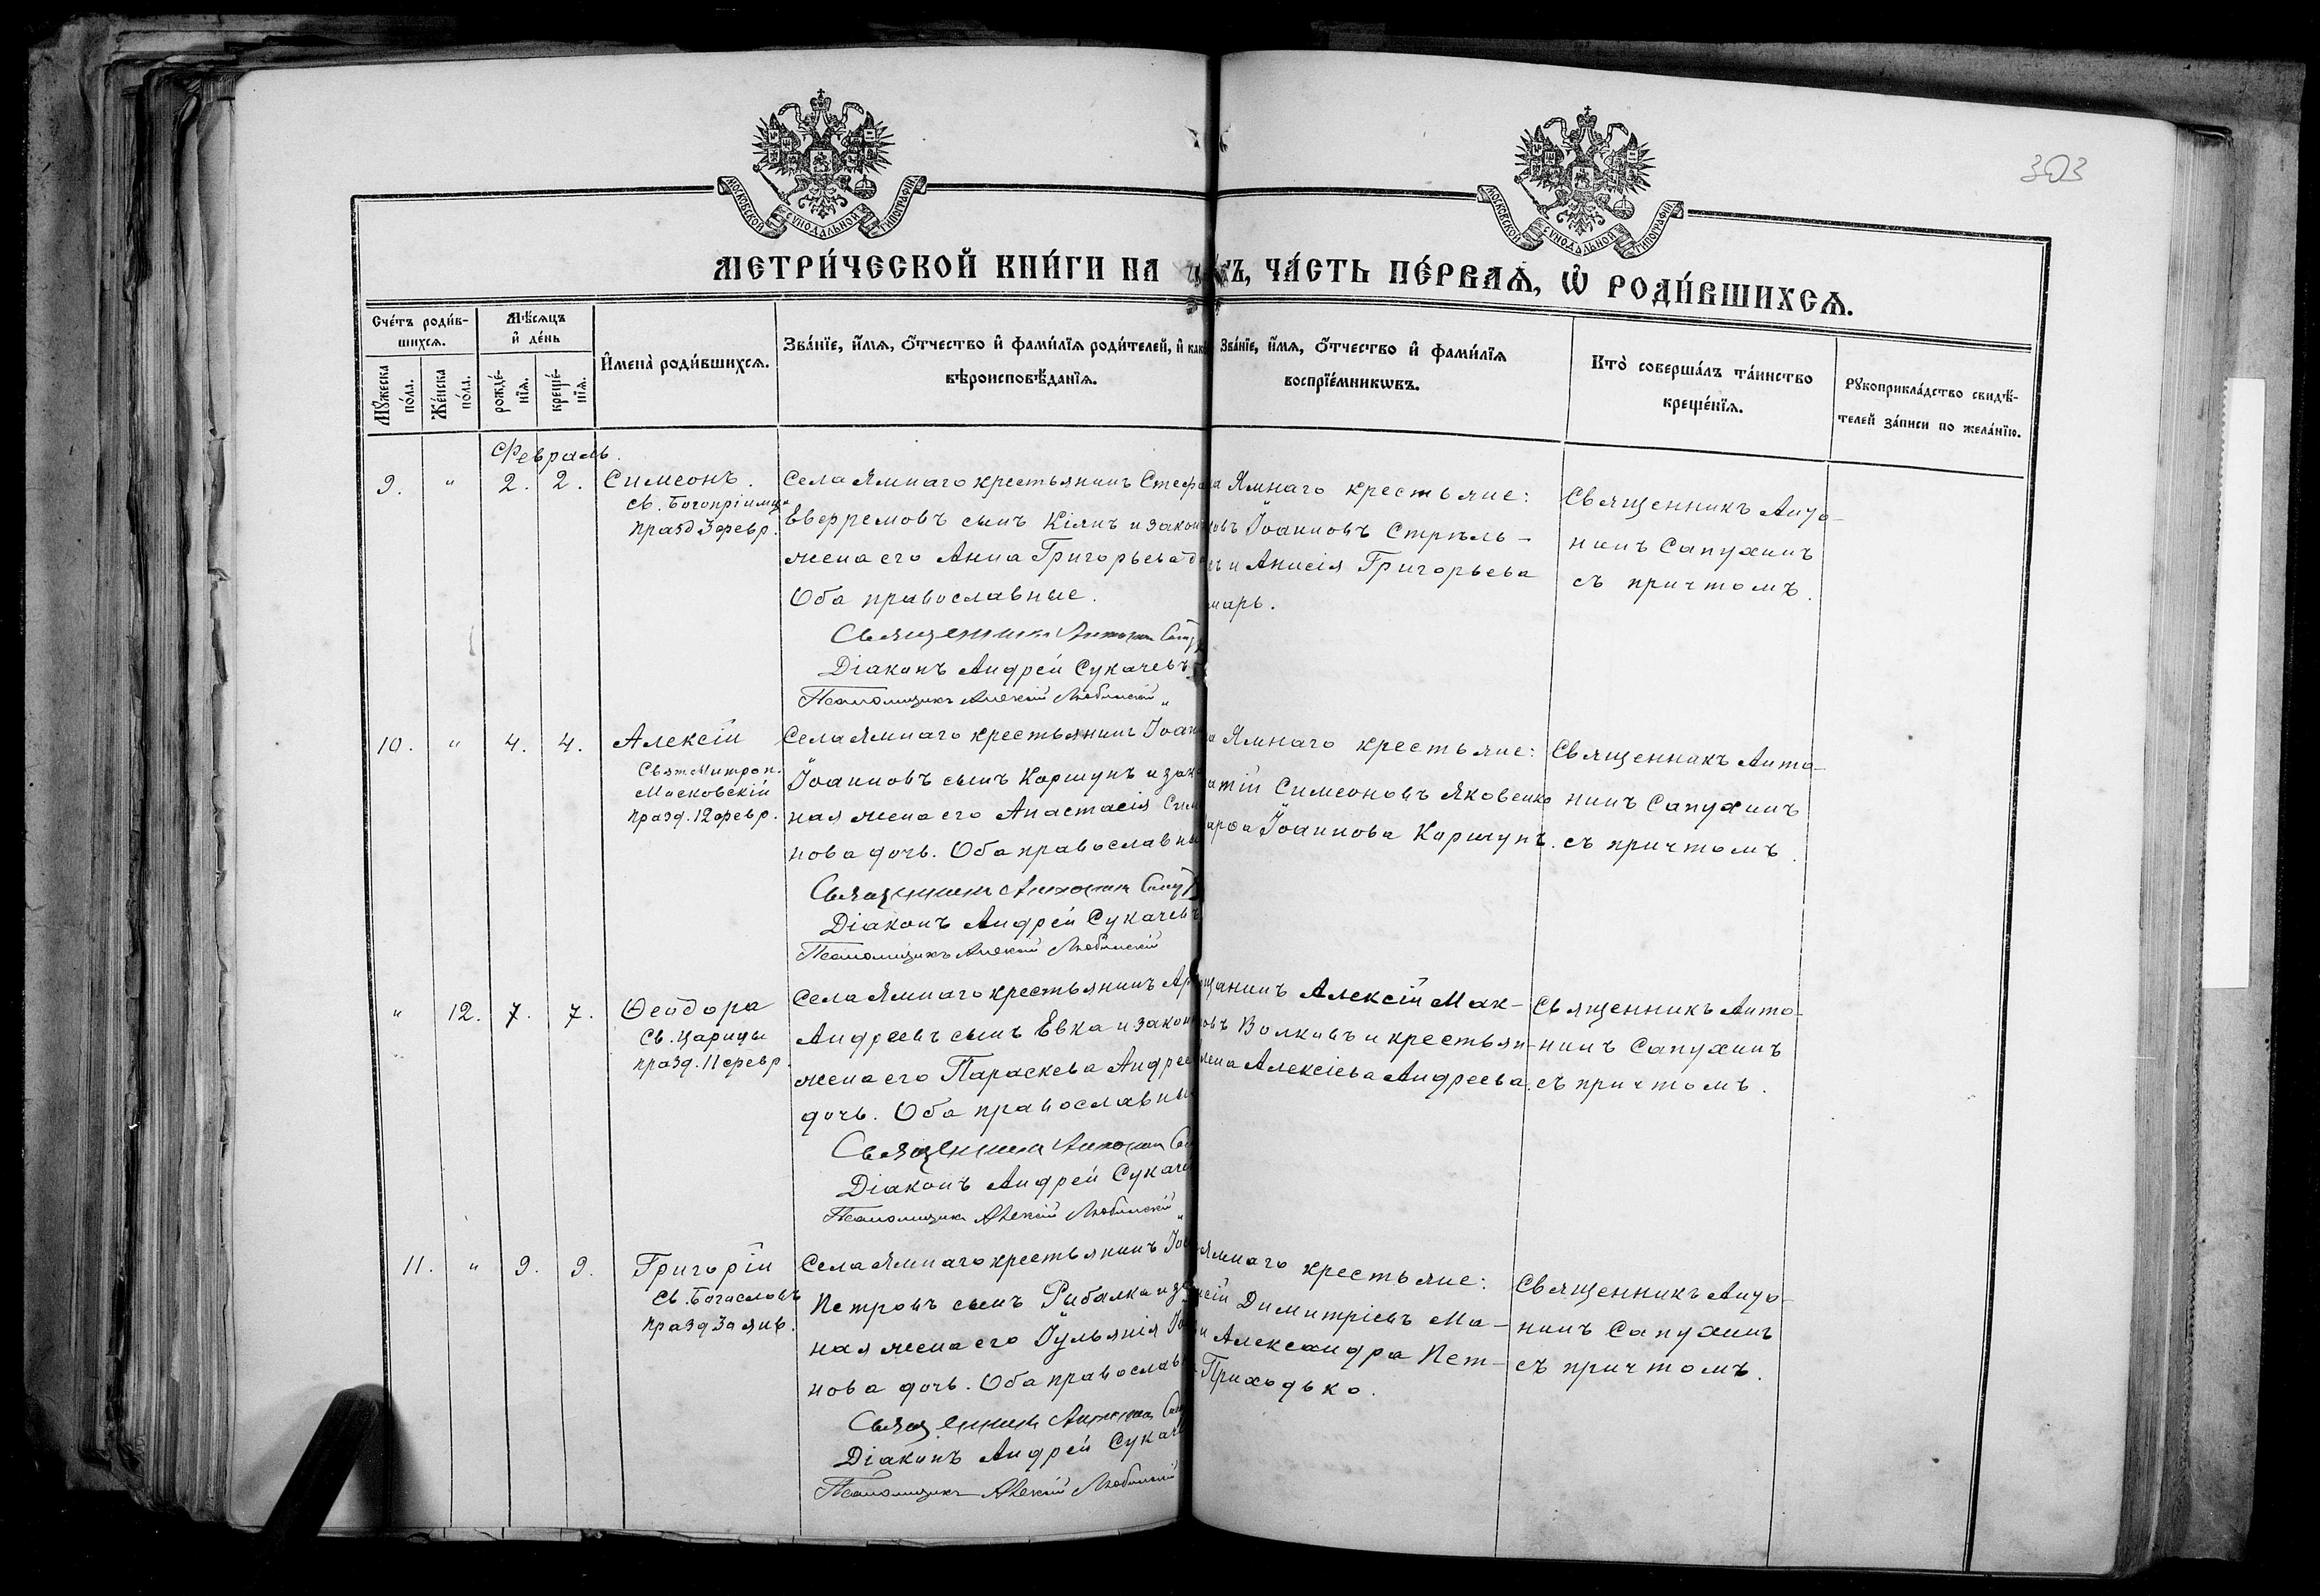 303
МОСКОВСКОЙ СѴНОДАЛЬНОЙ ТИПОГРАФІИ
МОСКОВСКОЙ СѴНОДАЛЬНОЙ ТИПОГРАФІИ
МЕТРИ́ЧЕСКОЙ КНИ́ГИ НА
Ъ, ЧА́СТЬ ПЕ́РВАѦ, Ѡ҆ РОДИ́ВШИХСѦ.
Сче́тъ роди́в-
шихсѧ.
Мѣ́сѧцъ
и҆ де́нь
Мꙋ́жеска
по́ла.
Же́нска
по́ла.
рожде́-
нїѧ.
креще́-
нїѧ.
И҆мена̀ роди́вшихсѧ.
Зва́нїе, и҆́мѧ, ѻ҆́тчество и҆ фами́лїѧ роди́телей, и҆
вѣроисповѣ́данїѧ.
Зва́нїе, и҆́мѧ, ѻ҆́тчество и҆ фами́лїѧ
воспрїе́мникѡвъ.
Кто̀ соверша́лъ та́инство
креще́нїѧ.
Рꙋкоприкла́дство свидѣ́-
телей за́писи по жела́нїю.
Февраль.
9. " 2. 2. Симеонъ.
Св. Богопріимца
празд 3 февр.
Села Ямнаго крестьянинъ Стеф
Евфремовъ сынъ Кіянъ и закон
жена его Анна Григорьева
Оба православные.
Священникъ Антонин
Діаконъ Андрей Сукачевъ
Псаломщикъ Алексій Любинскій
Ямнаго крестьяне:
Іоанновъ Стрѣль-
и Анисія Григорьева
марь.
Священникъ Анто-
нинъ Сапухинъ
съ причтомъ.
10. " 4. 4. Алексій
Свят Митроп.
Московскій
празд. 12 февр.
Села Ямнаго крестьянинъ Іоан
Іоанновъ сынъ Коршунъ и зак
ная жена его Анастасія Сим
нова дочь. Оба православны
Священникъ Антонин
Діаконъ Андрей Сукачевъ
Псаломщикъ Алексій Любинскій
Ямнаго крестьяне:
атій Симеоновъ Яковенко
Іоаннова Коршунъ.
Священникъ Анто-
нинъ Сапухинъ
съ причтомъ.
" 12. 7. 7. Ѳеодора
Св. Царицы
празд. 11 февр.
Села Ямнаго крестьянинъ
Андреевъ сынъ Евка и закон
жена его Параскева Андрее
дочь. Оба православны
Священникъ Антонин
Діаконъ Андрей Сукаче
Псаломщикъ Алексій Любинскій
щанинъ Алексій Мак-
овъ Волковъ и крестьян-
Алексіева Андреева.
Священникъ Анто-
нинъ Сапухинъ
съ причтомъ.
11. " 9. 9. Григорій
Св. Богословъ
празд 30 янв.
Села Ямнаго крестьянинъ
Петровъ сынъ Рыбалка и за
ная жена его Іульянія
нова дочь. Оба православ
Священникъ Антонин
Діаконъ Андрей Сукаче
Псаломщикъ Алексій Любинскій
Ямнаго крестьяне:
Димитріевъ Ма-
и Александра Пет-
Приходько.
Священникъ Анто-
нинъ Сапухинъ
съ причтомъ.